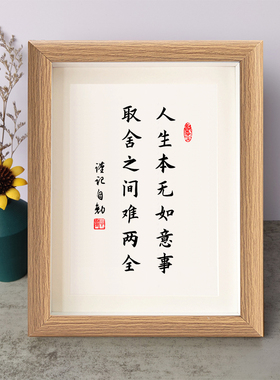 人生本无如意事
取舍之间难两全
谨记自勉